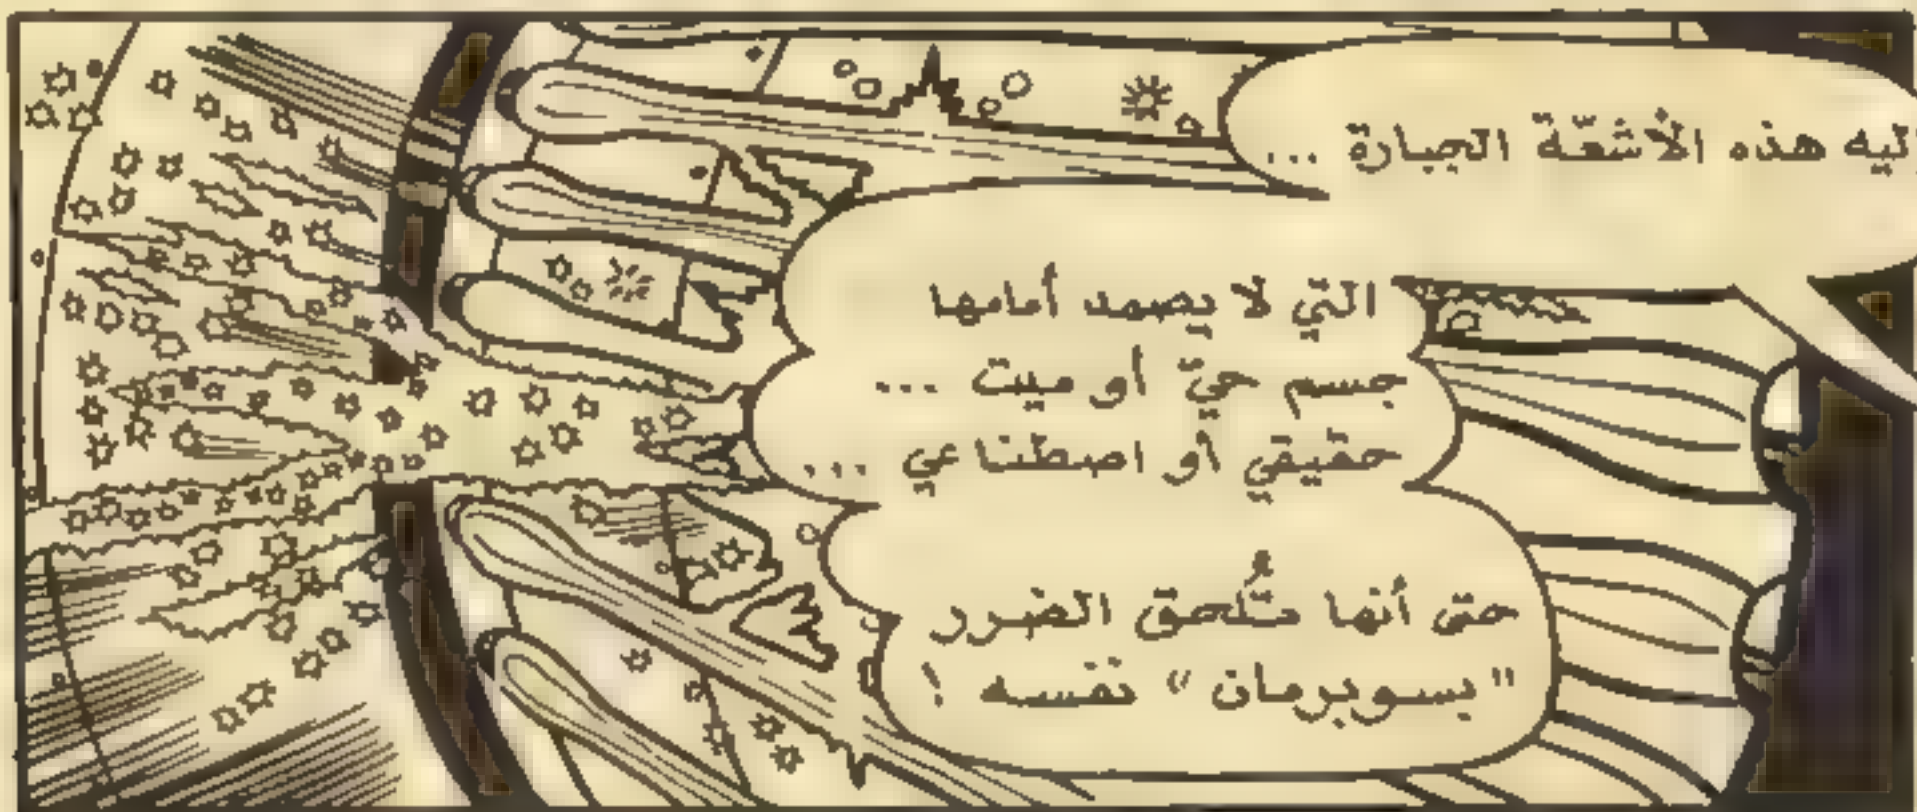 اليه هذه الأشعّة الجبارة ...
التي لا يصمد أمامها
جسم حيّ أو ميت ...
حقيقي أو اصطناعي ...
حتى أنها تُلحق الضرر
"بسوبرمان" نفسه !